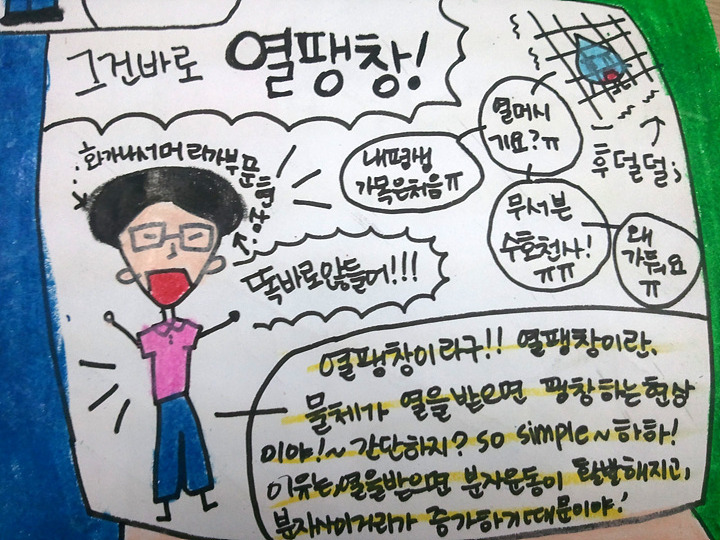 그건바로 열팽창!
화가나서머리가부푼현상
열머시
기요?ㅠ
후덜덜;
내평생
가목은처음ㅠ
무서븐
수호천사!
ㅠㅠ
왜
가둬요
ㅠ
똑바로않들어!!!
열팽창이라구!! 열팽창이란,
물체가 열을 받으면 팽창하는 현상
이야!~ 간단하지? so simple~하하!
이유는, 열을받으면 분자운동이 활발해지고,
분자사이거리가 증가하기때문이야!